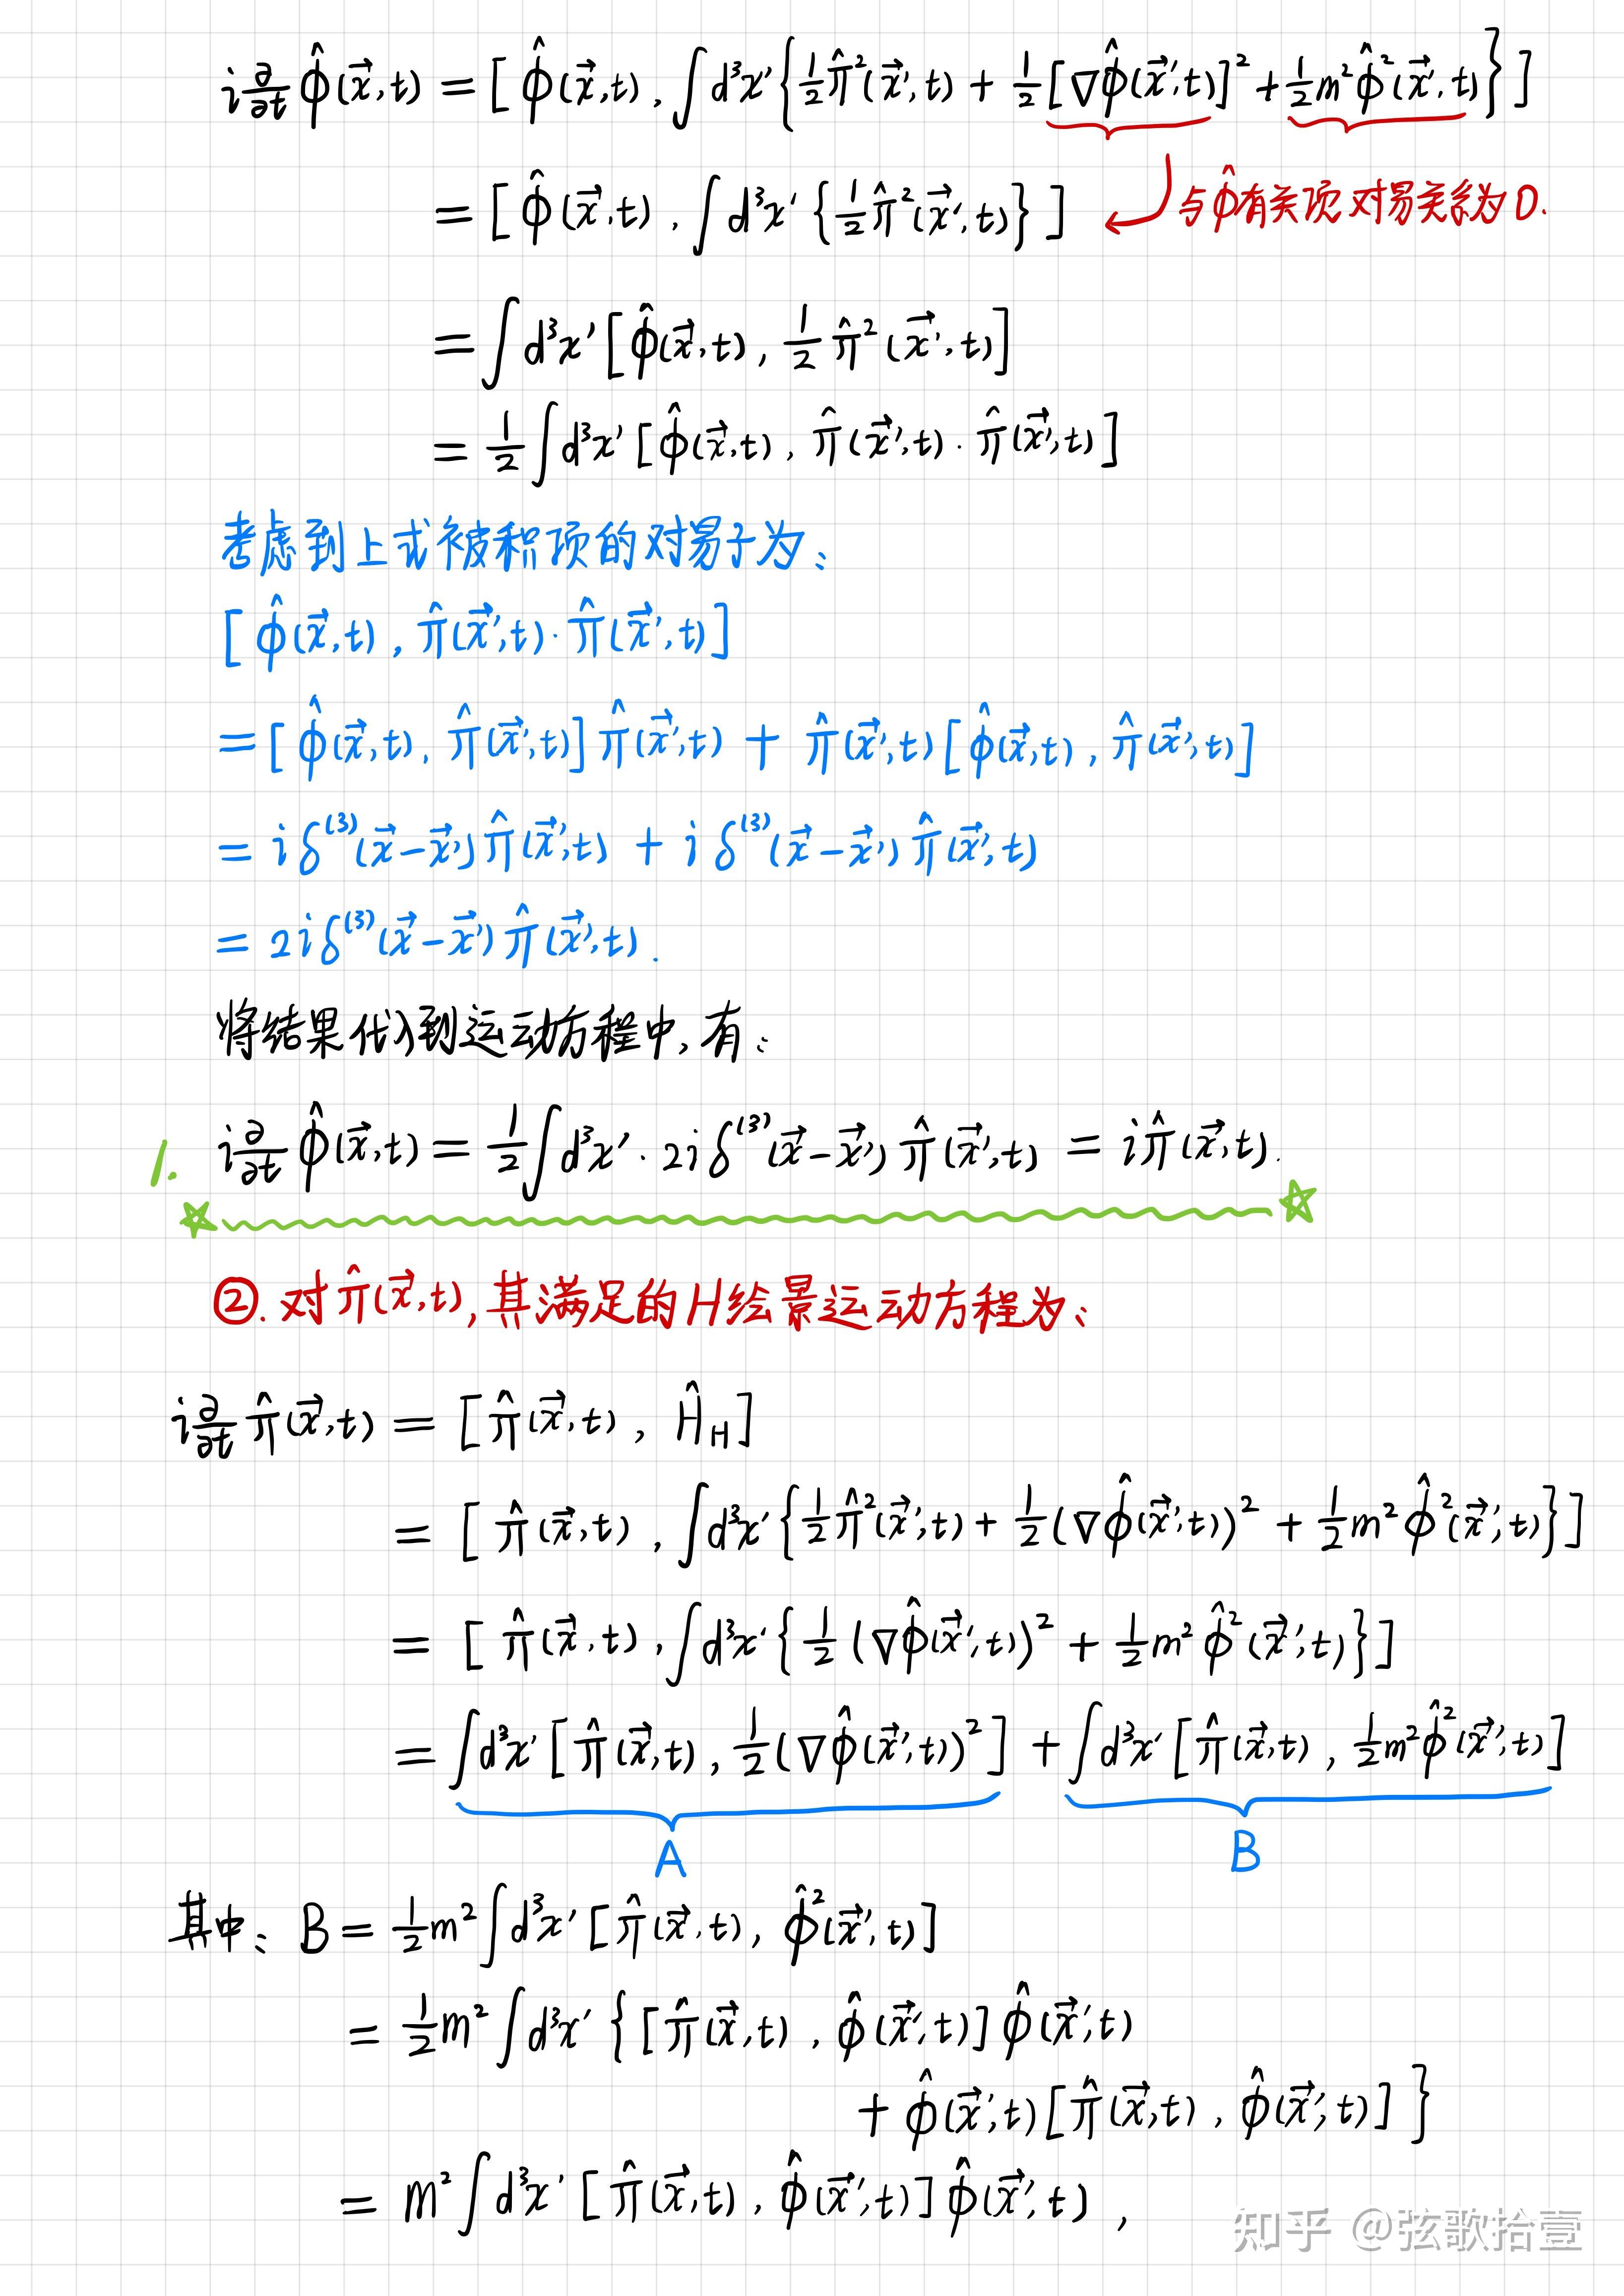 i∂/∂t φ̂(x⃗,t) = [φ̂(x⃗,t), ∫d³x′{½π̂²(x⃗′,t) + ½[∇φ̂(x⃗′,t)]² + ½m²φ̂²(x⃗′,t)}]
= [φ̂(x⃗,t), ∫d³x′{½π̂²(x⃗′,t)}] 与φ̂有关项对易关系为0.
= ∫d³x′[φ̂(x⃗,t), ½π̂²(x⃗′,t)]
= ½∫d³x′[φ̂(x⃗,t), π̂(x⃗′,t)·π̂(x⃗′,t)]
考虑到上式被积项的对易子为:
[φ̂(x⃗,t), π̂(x⃗′,t)·π̂(x⃗′,t)]
= [φ̂(x⃗,t), π̂(x⃗′,t)]π̂(x⃗′,t) + π̂(x⃗′,t)[φ̂(x⃗,t), π̂(x⃗′,t)]
= iδ⁽³⁾(x⃗-x⃗′)π̂(x⃗′,t) + iδ⁽³⁾(x⃗-x⃗′)π̂(x⃗′,t)
= 2iδ⁽³⁾(x⃗-x⃗′)π̂(x⃗′,t).
将结果代入到运动方程中,有:
1. i∂/∂t φ̂(x⃗,t) = ½∫d³x′·2iδ⁽³⁾(x⃗-x⃗′)π̂(x⃗′,t) = iπ̂(x⃗,t).
②.对π̂(x⃗,t),其满足的H绘景运动方程为:
i∂/∂t π̂(x⃗,t) = [π̂(x⃗,t), Ĥ_H]
= [π̂(x⃗,t), ∫d³x′{½π̂²(x⃗′,t) + ½(∇φ̂(x⃗′,t))² + ½m²φ̂²(x⃗′,t)}]
= [π̂(x⃗,t), ∫d³x′{½(∇φ̂(x⃗′,t))² + ½m²φ̂²(x⃗′,t)}]
= ∫d³x′[π̂(x⃗,t), ½(∇φ̂(x⃗′,t))²] + ∫d³x′[π̂(x⃗,t), ½m²φ̂²(x⃗′,t)]
A B
其中: B = ½m²∫d³x′[π̂(x⃗,t), φ̂²(x⃗′,t)]
= ½m²∫d³x′{[π̂(x⃗,t), φ̂(x⃗′,t)]φ̂(x⃗′,t)
+ φ̂(x⃗′,t)[π̂(x⃗,t), φ̂(x⃗′,t)]}
= m²∫d³x′[π̂(x⃗,t), φ̂(x⃗′,t)]φ̂(x⃗′,t),
知乎 @弦歌拾壹